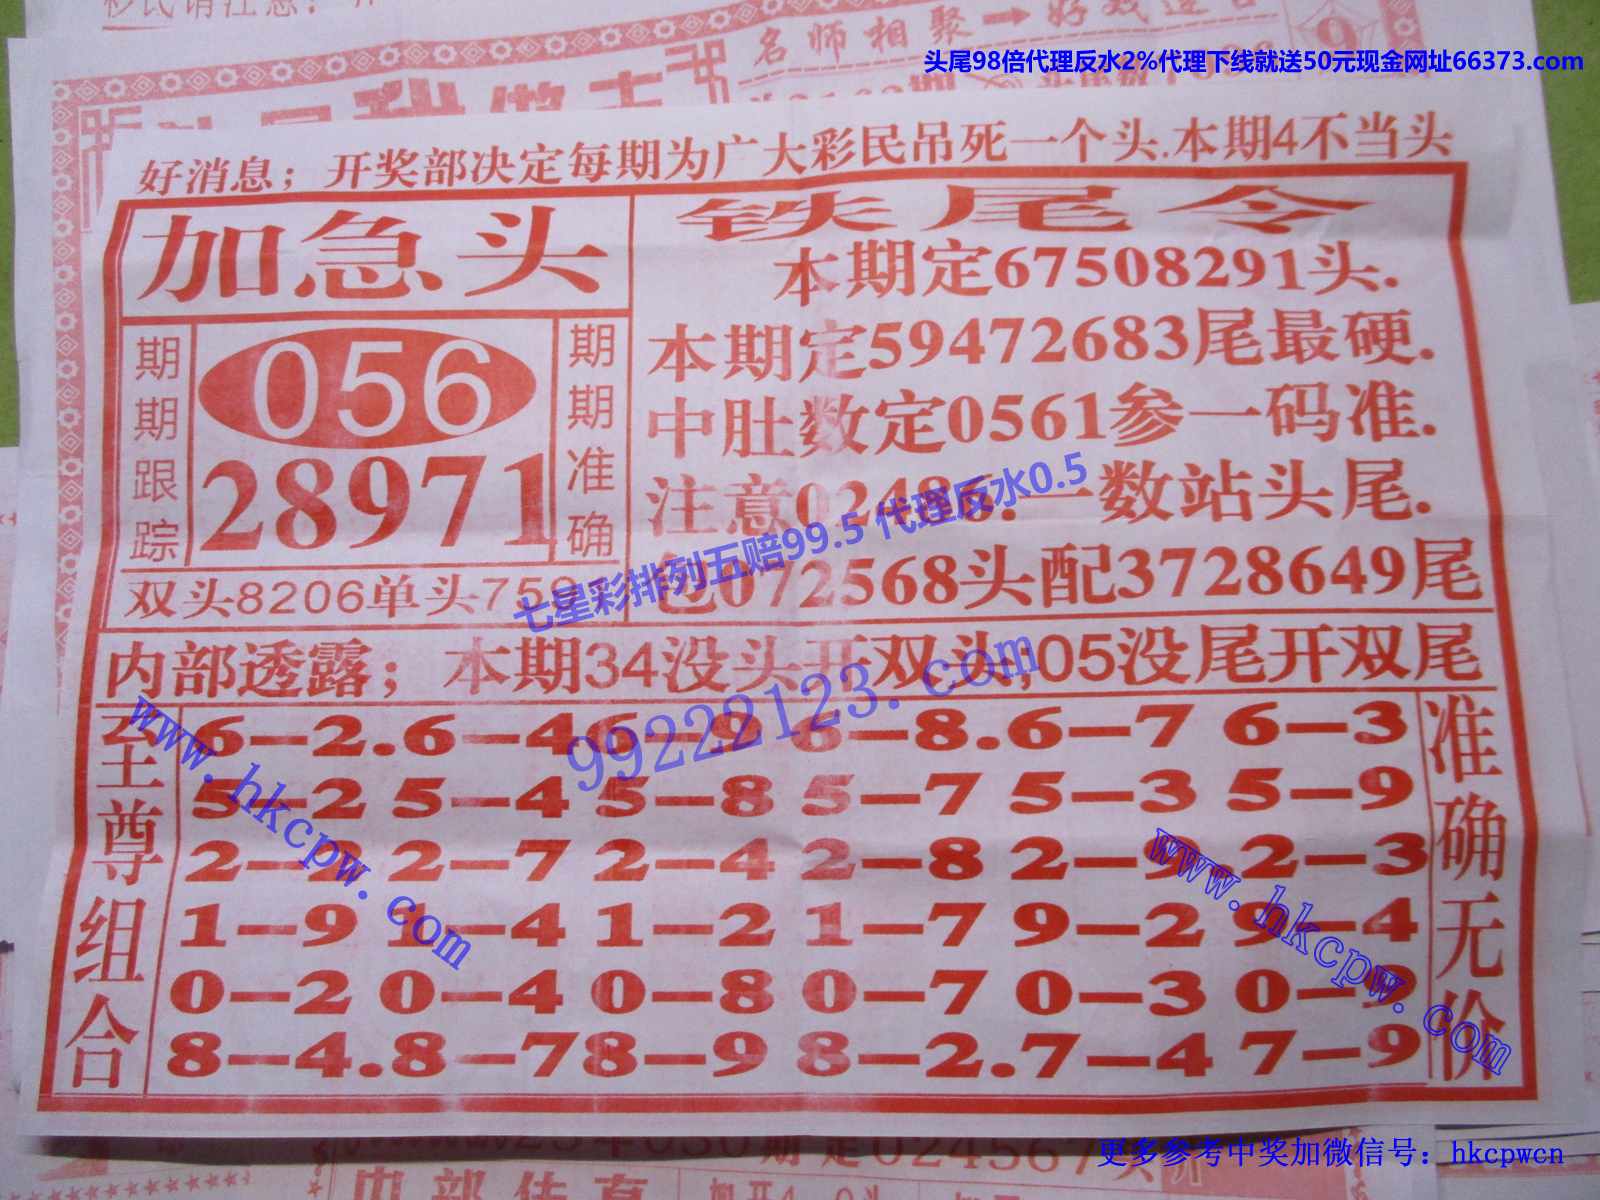 彩民请注意:
名师相聚
头尾98倍代理反水2%代理下线就送50元现金网址66373.com
好消息；开奖部决定每期为广大彩民吊死一个头.本期4不当头
加急头
期期跟踪
056
28971
期期准确
双头8206单头759
铁尾令
本期定67508291头.
本期定59472683尾最硬.
中肚数定0561参一码准.
注意02486.一数站头尾.
包072568头配3728649尾
七星彩排列五赔99.5 代理反水0.5
99222123.com
内部透露；本期34没头开双头;05没尾开双尾
至尊组合
6—2.6—4 6—9 6—8.6—7 6—3
5—2 5—4 5—8 5—7 5—3 5—9
2—2 2—7 2—4 2—8 2—9.2—3
1—9 1—4 1—2 1—7 9—2 9—4
0—2 0—4 0—8 0—7 0—3 0—9
8—4.8—7 8—9 8—2.7—4 7—9
准确无价
www.hkcpw.com
www.hkcpw.com
更多参考中奖加微信号：hkcpwcn